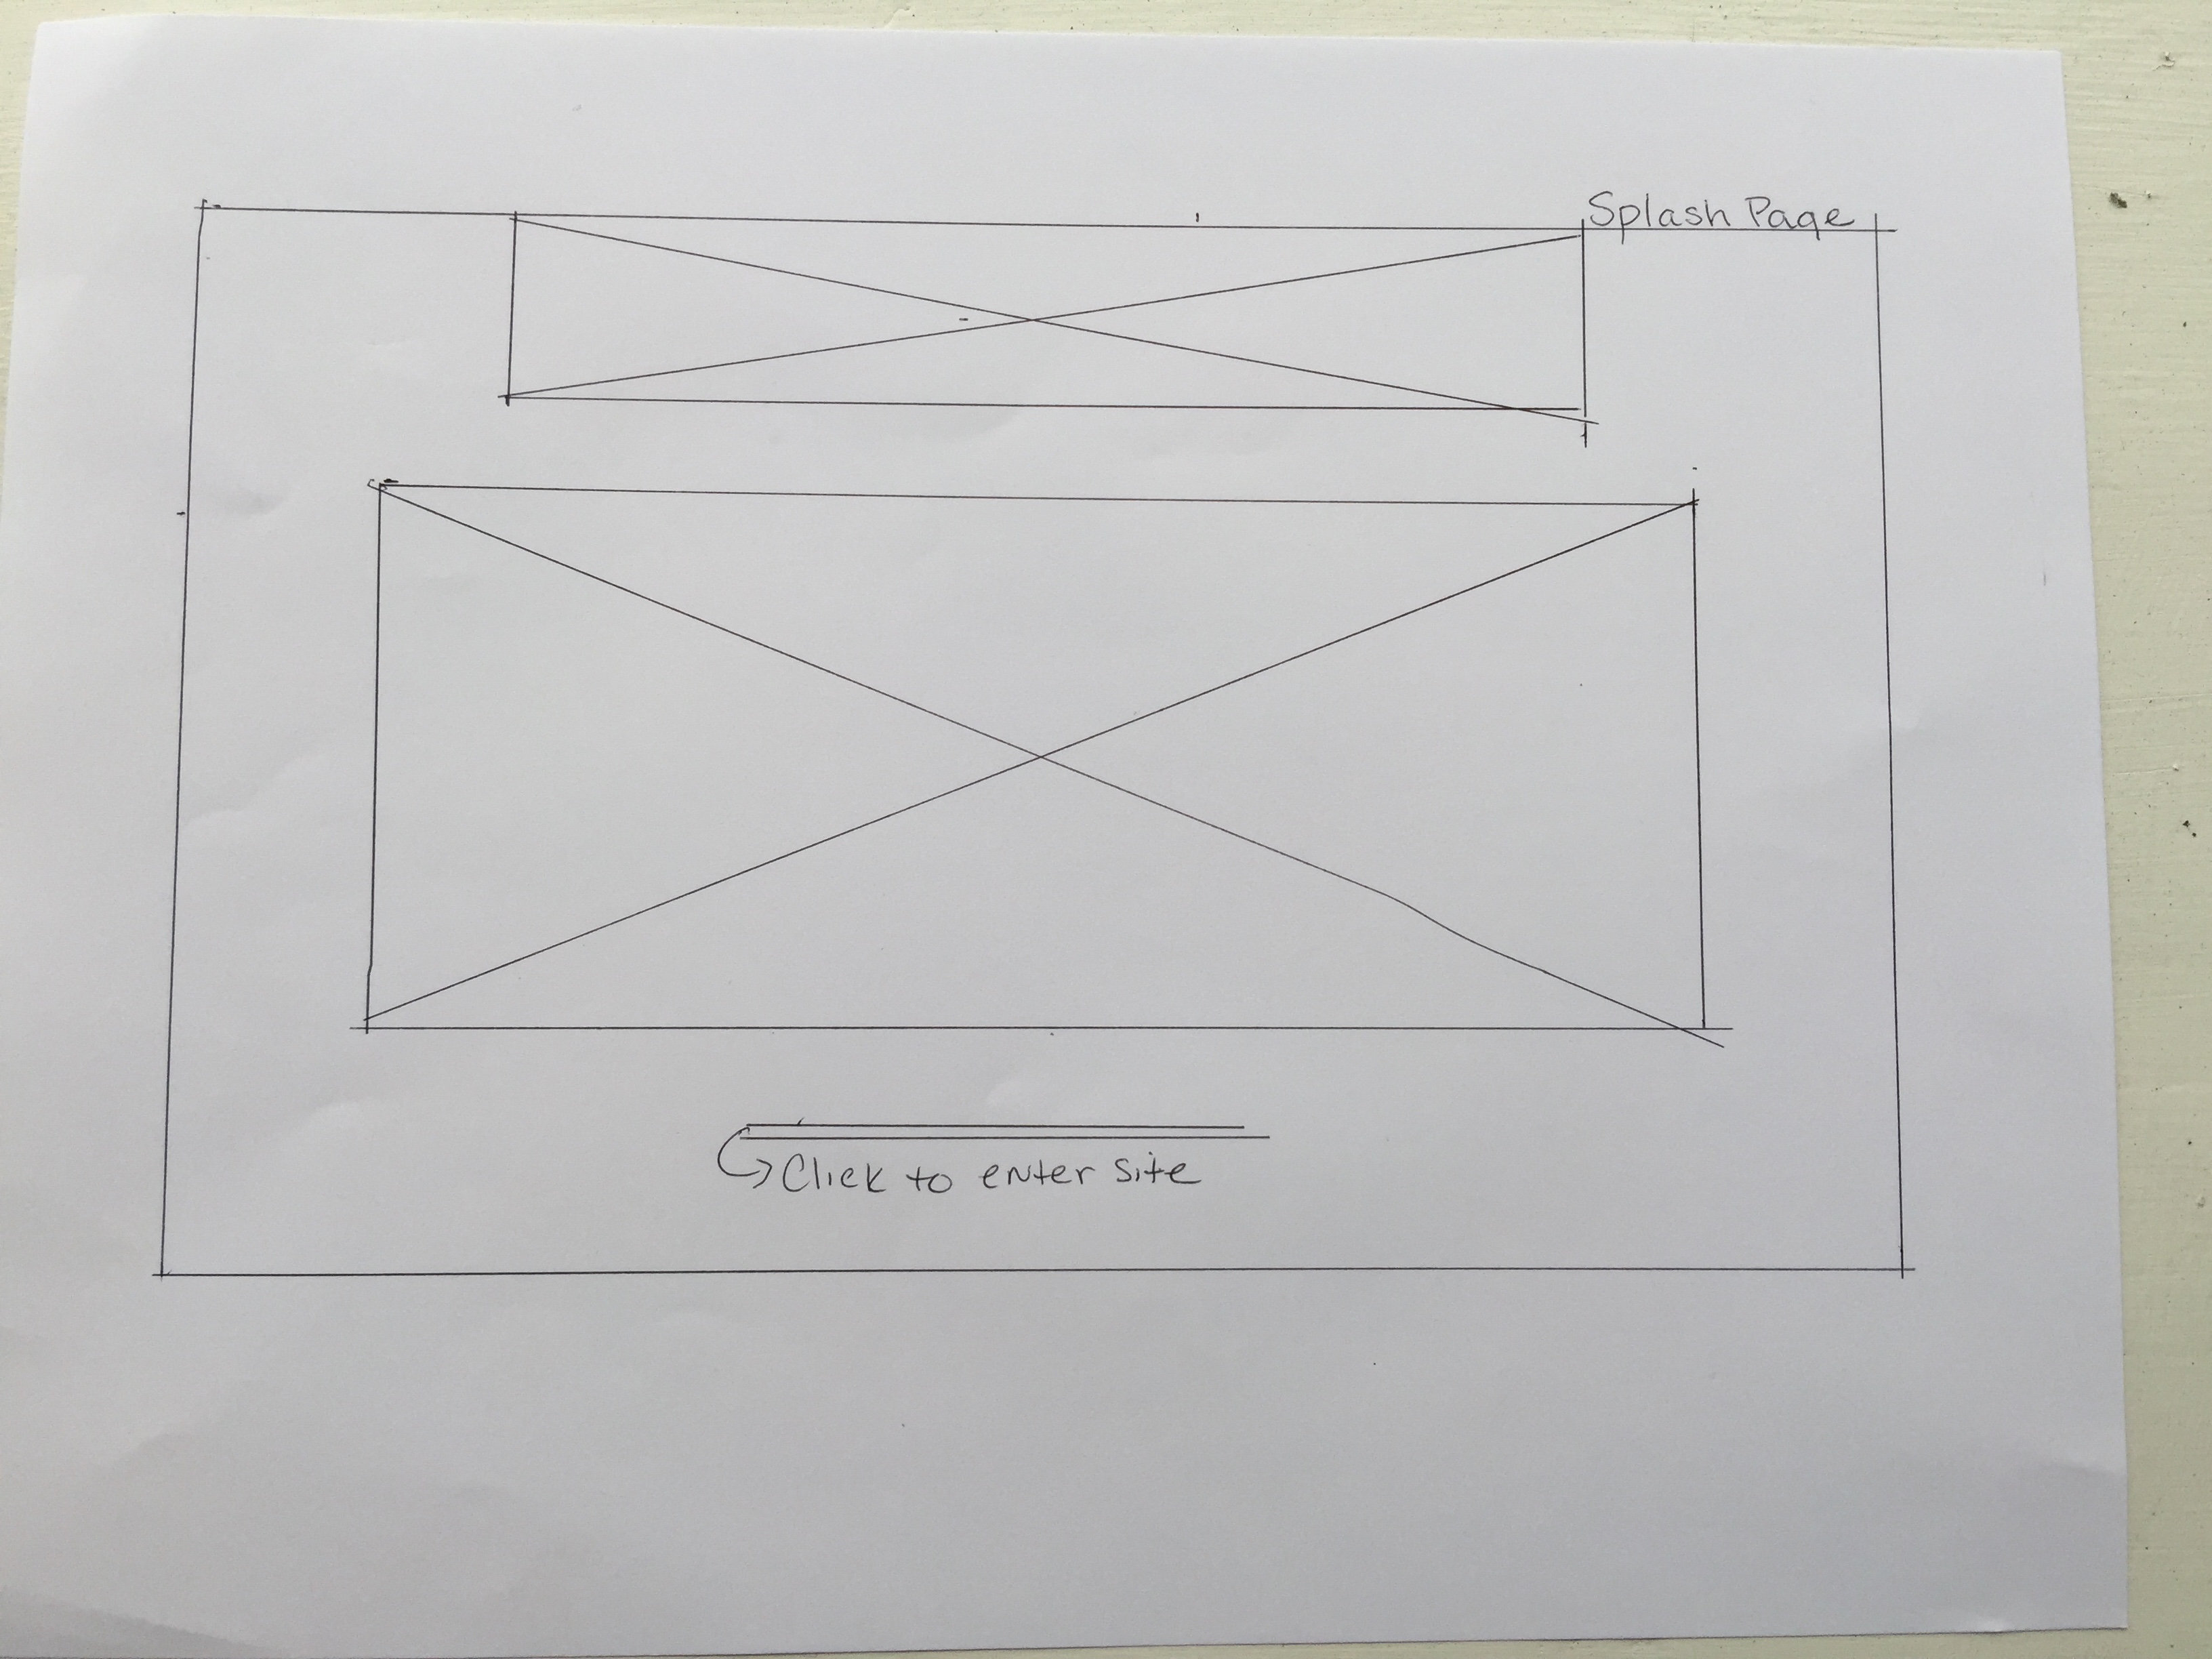 Splash Page
Click to enter site